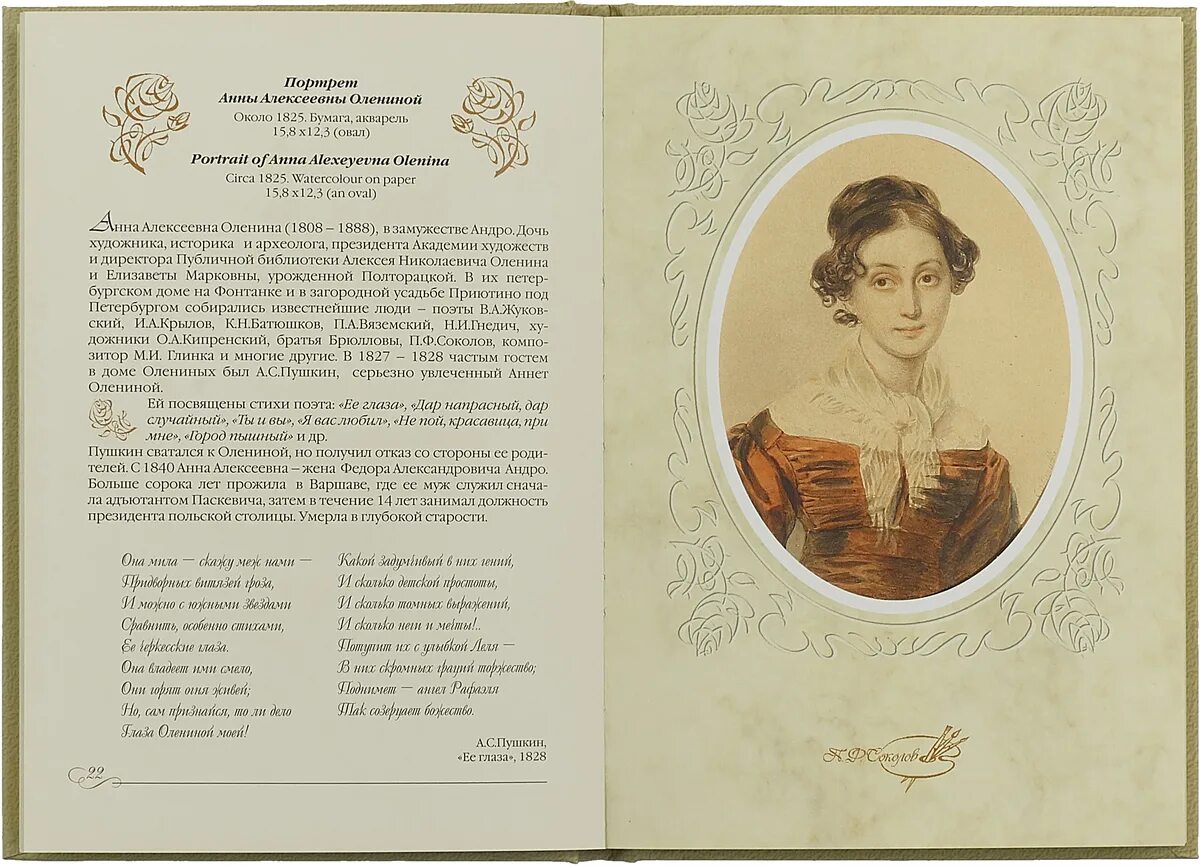 Портрет
Анны Алексеевны Олениной
Около 1825. Бумага, акварель
15,8 х12,3 (овал)
Portrait of Anna Alexeyevna Olenina
Circa 1825. Watercolour on paper
15,8 x12,3 (an oval)
Анна Алексеевна Оленина (1808 – 1888), в замужестве Андро. Дочь
художника, историка и археолога, президента Академии художеств
и директора Публичной библиотеки Алексея Николаевича Оленина
и Елизаветы Марковны, урожденной Полторацкой. В их петер-
бургском доме на Фонтанке и в загородной усадьбе Приютино под
Петербургом собирались известнейшие люди – поэты В.А.Жуков-
ский, И.А.Крылов, К.Н.Батюшков, П.А.Вяземский, Н.И.Гнедич, ху-
дожники О.А.Кипренский, братья Брюлловы, П.Ф.Соколов, компо-
зитор М.И. Глинка и многие другие. В 1827 – 1828 частым гостем
в доме Олениных был А.С.Пушкин, серьезно увлеченный Аннет
Олениной.
Ей посвящены стихи поэта: «Ее глаза», «Дар напрасный, дар
случайный», «Ты и вы», «Я вас любил», «Не пой, красавица, при
мне», «Город пышный» и др.
Пушкин сватался к Олениной, но получил отказ со стороны ее роди-
телей. С 1840 Анна Алексеевна – жена Федора Александровича Андро.
Больше сорока лет прожила в Варшаве, где ее муж служил снача-
ла адъютантом Паскевича, затем в течение 14 лет занимал должность
президента польской столицы. Умерла в глубокой старости.
Она мила — скажу меж нами —
Придворных витязей гроза,
И можно с южными звездами
Сравнить, особенно стихами,
Ее черкесские глаза.
Она владеет ими смело,
Они горят огня живей;
Но, сам признайся, то ли дело
Глаза Олениной моей!
Какой задумчивый в них гений,
И сколько детской простоты,
И сколько томных выражений,
И сколько неги и мечты!..
Потупит их с улыбкой Леля —
В них скромных граций торжество;
Поднимет — ангел Рафаэля
Так созерцает божество.
А.С.Пушкин,
«Ее глаза», 1828
22
П.Ф.Соколов